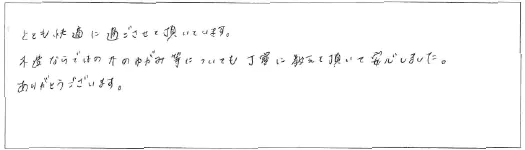 とても快適に過ごさせて頂いています。
木造ならではの木のゆがみ等についても丁寧に教えて頂いて安心しました。
ありがとうございます。